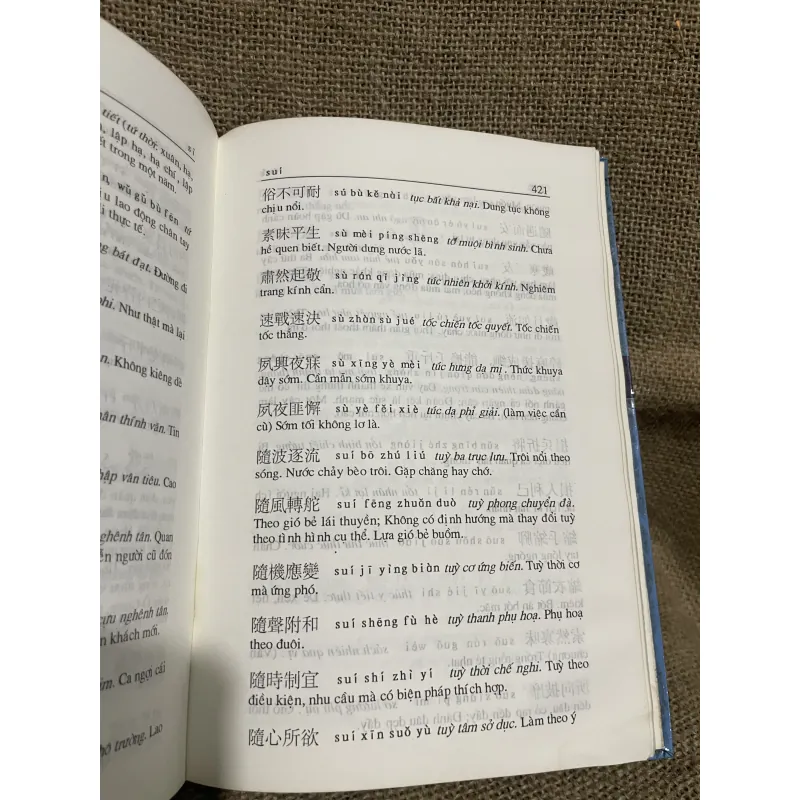 tiết (tứ thời: xuân, hạ,
lập hạ, hạ chí, lập
trong một năm.
wǔ gǔ bù fēn tứ
lao động chân tay
thực tế.
bất đạt. Đường đi
phi. Như thật mà lại
Không kiêng dè
nhân thính văn. Tin
nhập vân tiêu. Cao
nghênh tân. Quan
người cũ đón
cựu nghênh tân.
khách mới.
Ca ngợi cái
hô trường. Lao
suí
421
俗不可耐 sú bù kě nài tục bất khả nại. Dung tục không
chịu nổi.
素昧平生 sù mèi píng shēng tố muội bình sinh. Chưa
hề quen biết. Người dưng nước lã.
肅然起敬 sù rán qǐ jìng túc nhiên khởi kính. Nghiêm
trang kính cẩn.
速戰速決 sù zhàn sù jué tốc chiến tốc quyết. Tốc chiến
tốc thắng.
夙興夜寐 sù xīng yè mèi túc hưng dạ mị. Thức khuya
dậy sớm. Cần mẫn sớm khuya.
夙夜匪懈 sù yè fěi xiè túc dạ phỉ giải. (làm việc cần
cù) Sớm tối không lơ là.
隨波逐流 suí bō zhú liú tuỳ ba trục lưu. Trôi nổi theo
sóng. Nước chảy bèo trôi. Gặp chăng hay chớ.
隨風轉舵 suí fēng zhuǎn duò tuỳ phong chuyển đà.
Theo gió bẻ lái thuyền; Không có định hướng mà thay đổi tuỳ
theo tình hình cụ thể. Lựa gió bẻ buồm.
隨機應變 suí jī yìng biàn tuỳ cơ ứng biến. Tuỳ thời cơ
mà ứng phó.
隨聲附和 suí shēng fù hè tuỳ thanh phụ hoạ. Phụ hoạ
theo đuôi.
隨時制宜 suí shí zhì yí tuỳ thời chế nghi. Tuỳ theo
điều kiện, nhu cầu mà có biện pháp thích hợp.
隨心所欲 suí xīn suǒ yù tuỳ tâm sở dục. Làm theo ý